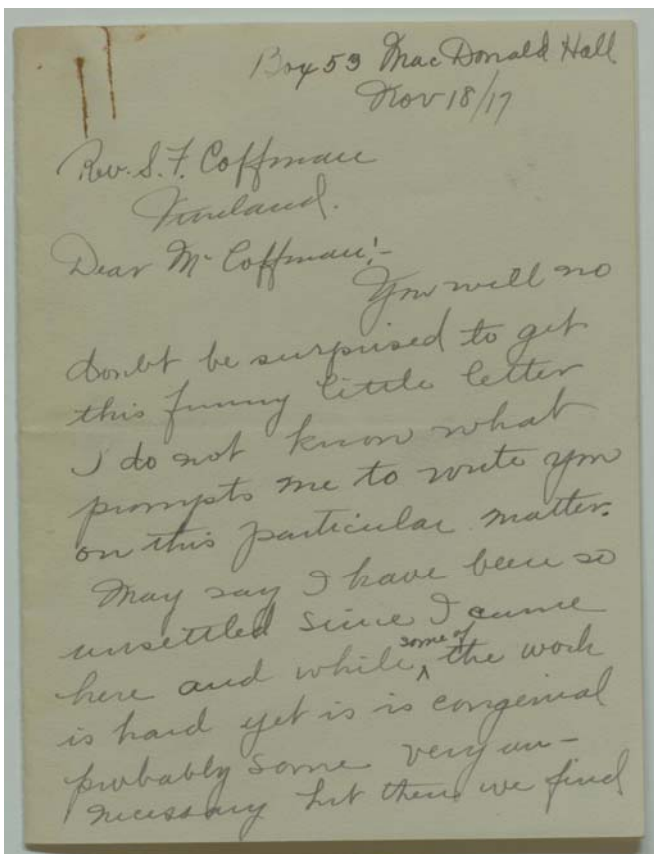 Box 53 MacDonald Hall
Nov 18/17
Rev. S. F. Coffman
Vineland.
Dear Mr Coffman!-
You will no
doubt be surprised to get
this funny little letter
I do not know what
prompts me to write you
on this particular matter.
May say I have been so
unsettled since I came
here and while some of the work
is hard yet is is congenial
probably some very un-
necessary but then we find